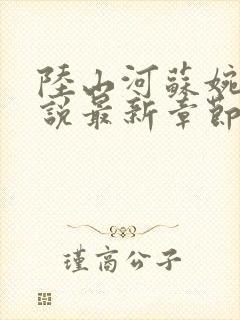 陸山河蘇婉
說最新章節
瑾高公子